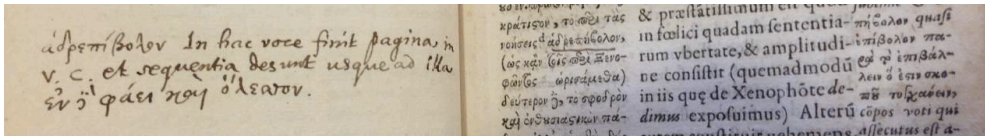 ἁδρεπίβολον In hac voce finit pagina, in
V. C. et sequentia desunt usque ad illa
φάει καὶ
κράτιστον, το περὶ τὰς
νοήσεις ἁδρεπίβολον,
(ὡς κἀν τοῖς περὶ Ξενο-
φῶντος ὡρισάμεθα)
δεύτερον δ, το σφοδρὸν
καὶ ἐνθουσιαστικὸν πά-
& præstatissimum est
in fœlici quadam sententia-
rum vbertate, & amplitudi-
ne consistit (quemadmodū
in iis quę de Xenophōte de-
dimus exposuimus) Alterū
πήβολον quasi
ἐπίβολον πα-
ἐπιβάλ-
λειν ὅ ἐστιν σκο-
ποῦ τυγχάνειν,
cōpos voti qui
assecutus est a-